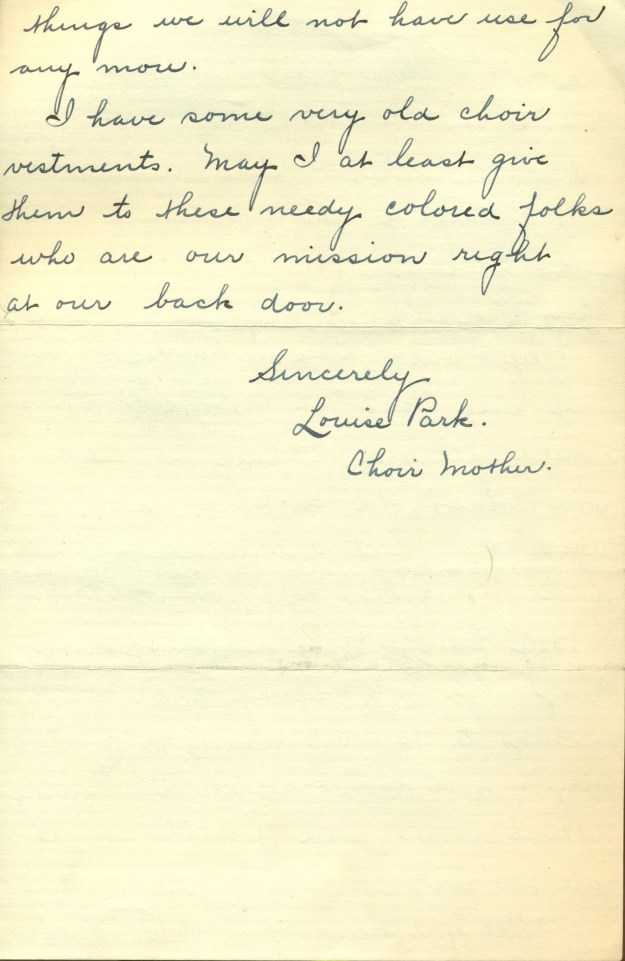 things we will not have use for
any more.
I have some very old choir
vestments. May I at least give
them to these needy colored folks
who are our mission right
at our back door.
Sincerely
Louise Park.
Choir Mother.